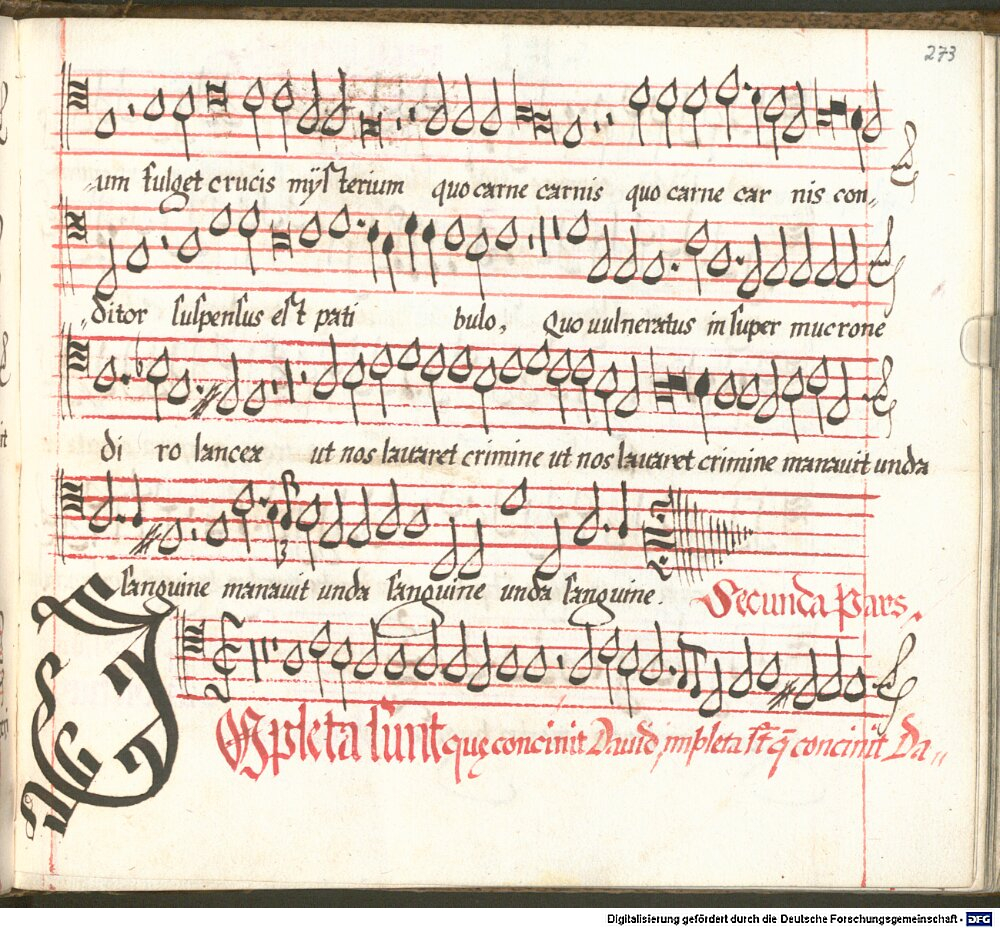 273
um fulget crucis mÿsterium quo carne carnis quo carne car nis con„
„ditor suspensus est pati bulo, Quo uulneratus insuper mucrone
di ro lanceæ ut nos lauaret crimine ut nos lauaret crimine manauit unda
sanguine manauit unda sanguine unda sanguine.
Secunda Pars.
Impleta sunt quę concinit Dauid impleta st q̄ concinit Da„
Digitalisierung gefördert durch die Deutsche Forschungsgemeinschaft - DFG